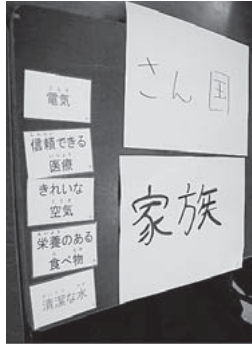 電気
信頼できる
医療
きれいな
空気
栄養のある
食べ物
清潔な水
さん国
家族